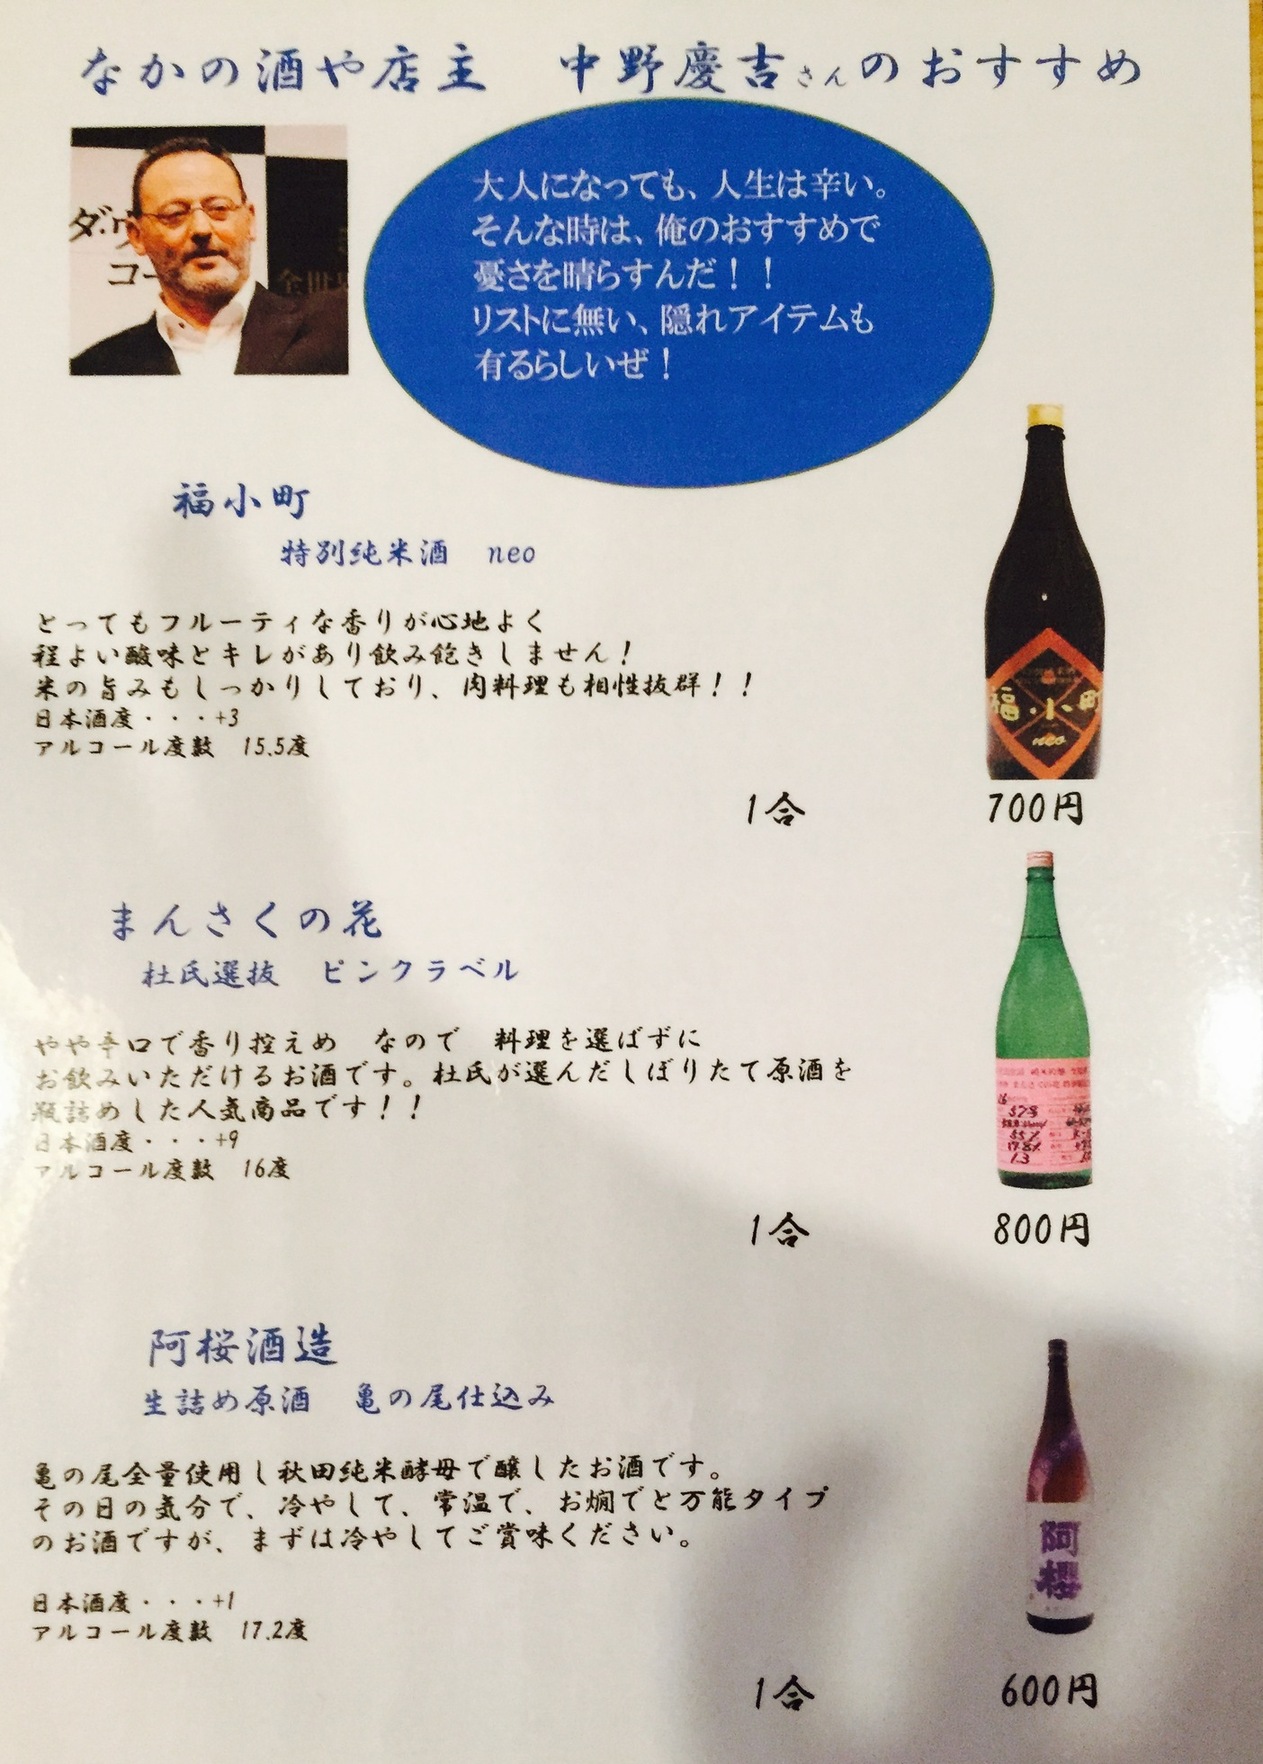 なかの酒や店主　中野慶吉さんのおすすめ
大人になっても、人生は辛い。
そんな時は、俺のおすすめで
憂さを晴らすんだ！！
リストに無い、隠れアイテムも
有るらしいぜ！
ダ・ヴ
コー
福小町
特別純米酒　neo
とってもフルーティな香りが心地よく
程よい酸味とキレがあり飲み飽きしません！
米の旨みもしっかりしており、肉料理も相性抜群！！
日本酒度・・・+3
アルコール度数　15.5度
福・小町
neo
1合　700円
まんさくの花
杜氏選抜　ピンクラベル
やや辛口で香り控えめ　なので　料理を選ばずに
お飲みいただけるお酒です。杜氏が選んだしぼりたて原酒を
瓶詰めした人気商品です！！
日本酒度・・・+9
アルコール度数　16度
1合　800円
阿桜酒造
生詰め原酒　亀の尾仕込み
亀の尾全量使用し秋田純米酵母で醸したお酒です。
その日の気分で、冷やして、常温で、お燗でと万能タイプ
のお酒ですが、まずは冷やしてご賞味ください。
日本酒度・・・+1
アルコール度数　17.2度
阿櫻
1合　600円